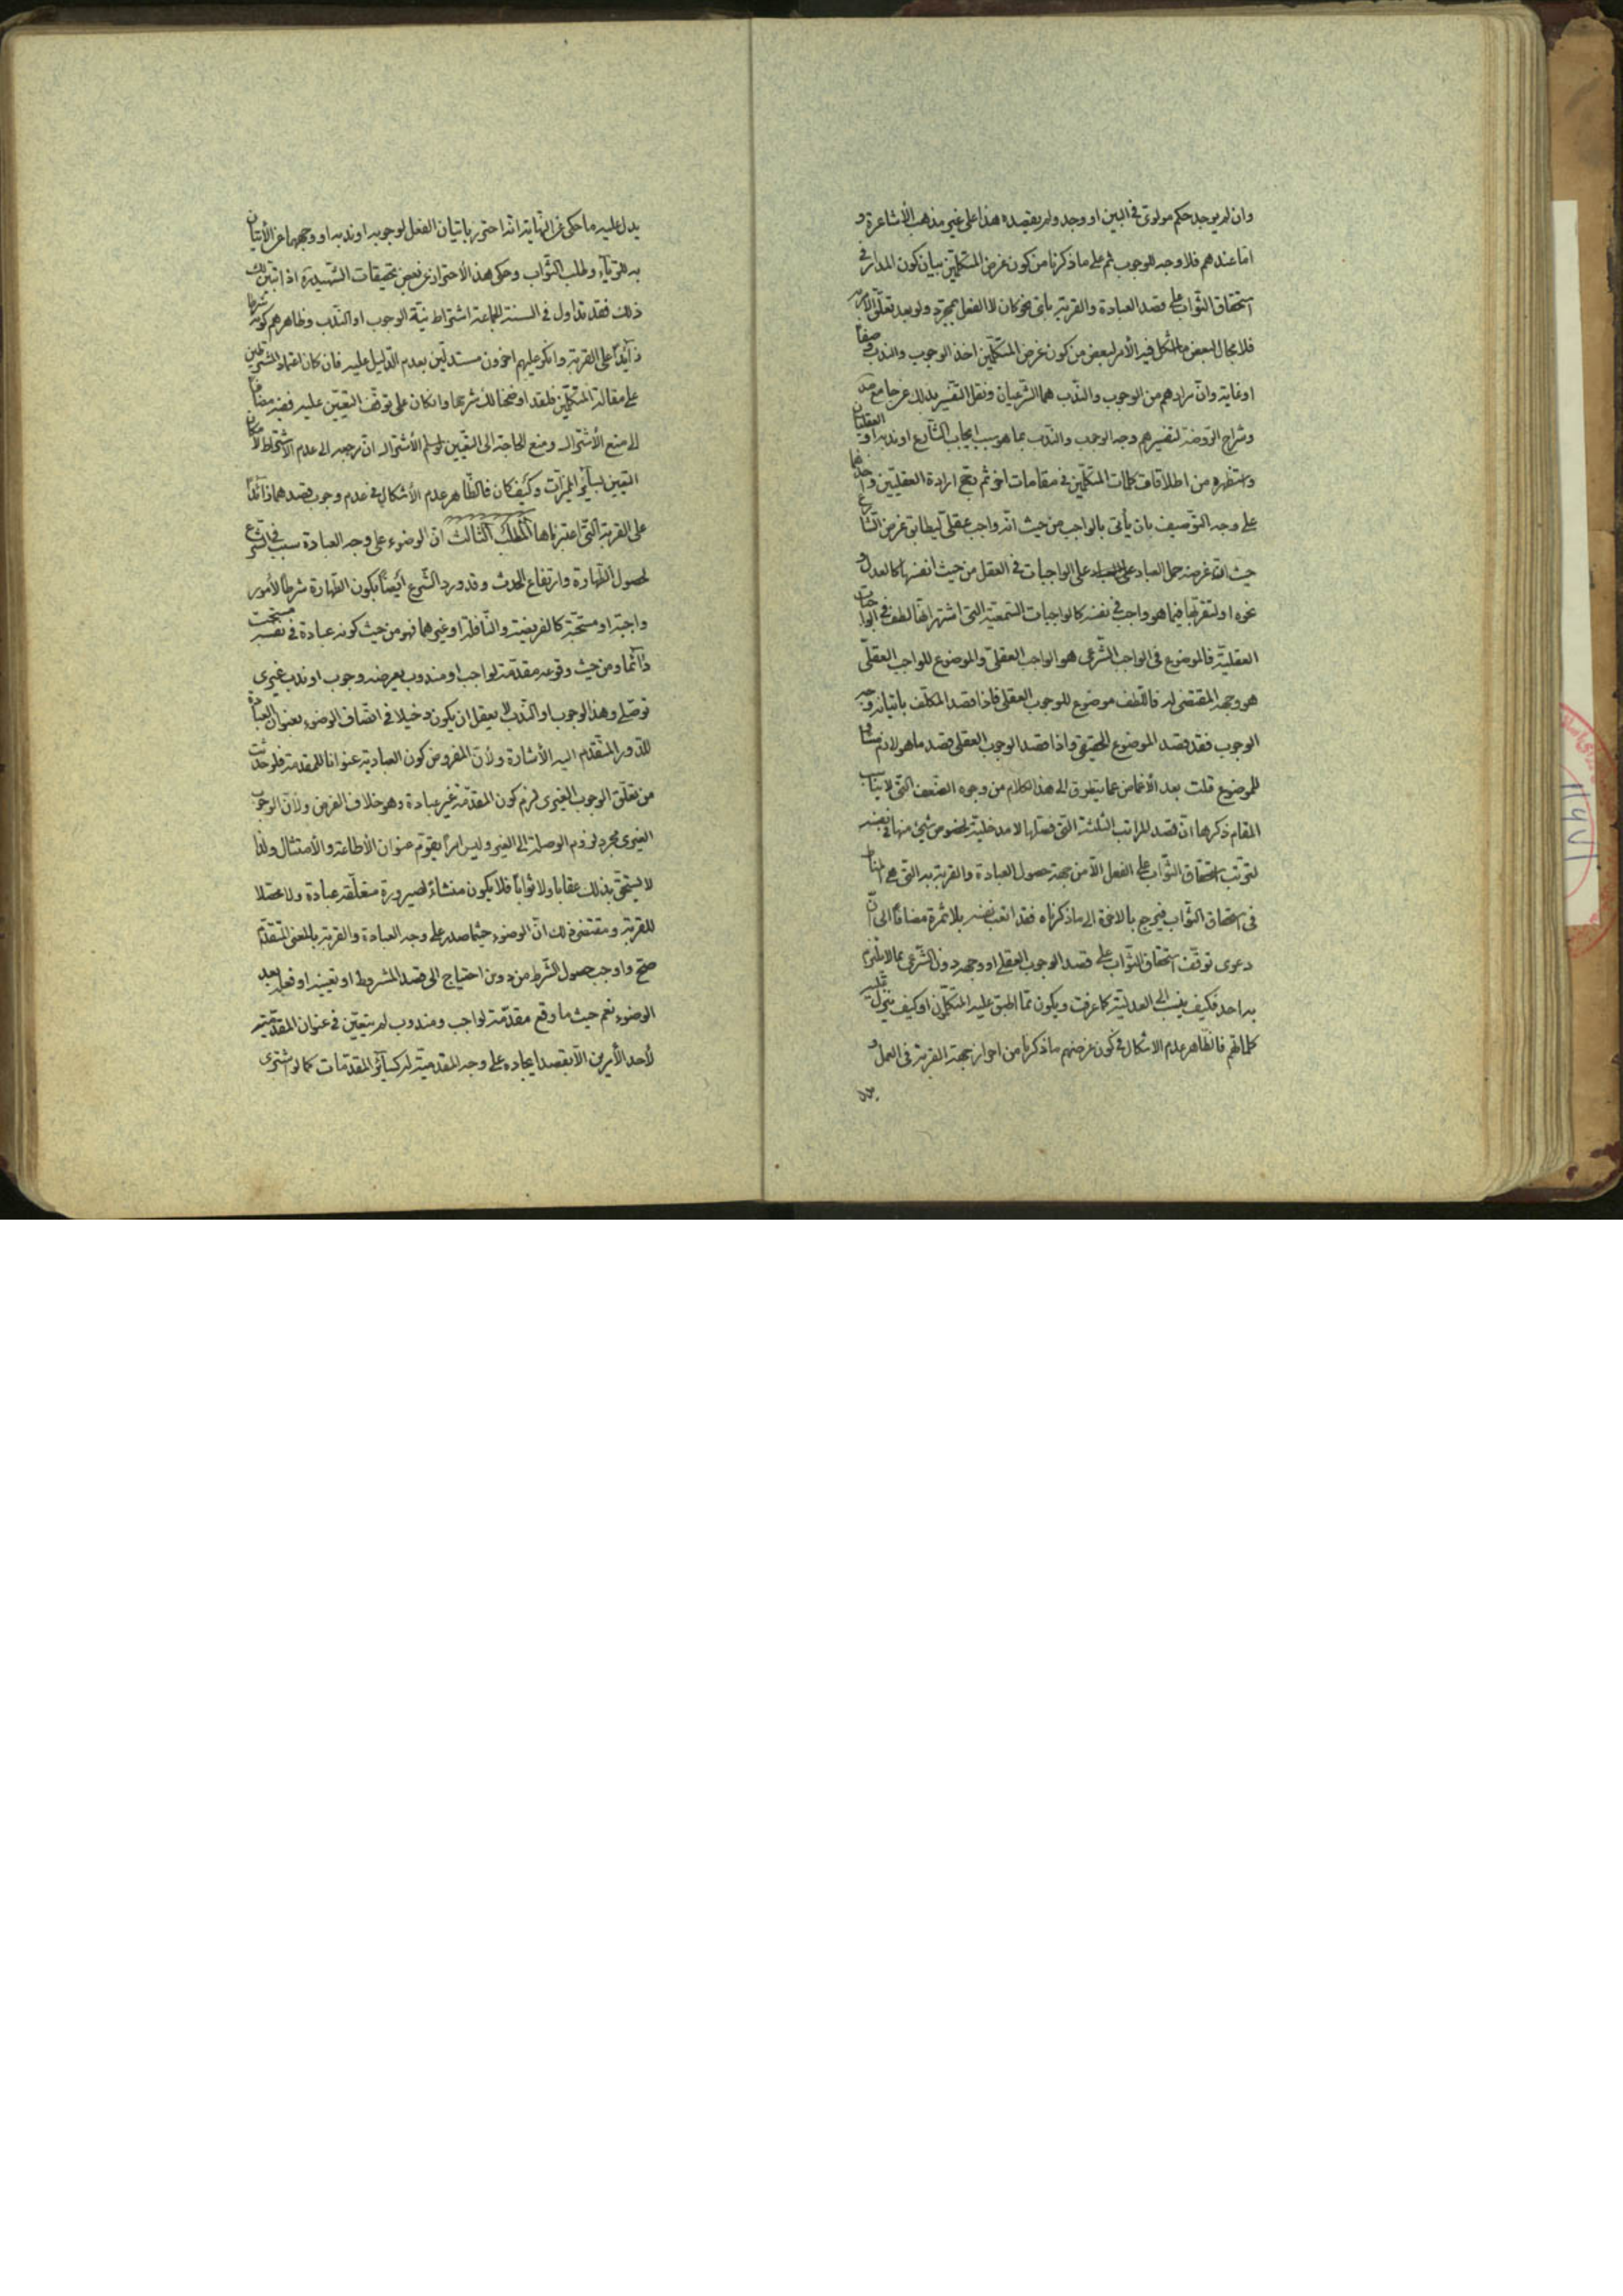 وان لم يوجد حكم مولوى فى البين او وجد ولم يقصده هذا على غير مذهب الأشاعرة و
اما عندهم فلا وجه للوجوب ثم على ما ذكرنا من كون غرض المتكلمين بيان كون المدار فى
استحقاق الثواب على قصد العبادة والقربة بأى نحو كان لا الفعل بمجرده ولو بعد تعلق الأمر به
فلا مجال لبعض ما اشكل فيه الأمر لبعض من كون غرض المتكلمين اخذ الوجوب والندب وصفا
او غاية وان مرادهم من الوجوب والندب هما الشرعيان ونقل التفسير بذلك عن جامع صد
وشراح الروضة لتفسيرهم وجه الوجوب والندب بما هو سبب ايجاب الشارع او ندبه او العقليان
واستظهره من اطلاقات كلمات المتكلمين فى مقامات اخر ثم رجح ارادة العقليين واخذهما
على وجه التوصيف بان يأتى بالواجب من حيث انه واجب عقلى ليطابق غرض الشارع
حيث ان غرضه حمل العباد على الواجبات فى العقل من حيث انفسها كالعدل و
نحوه او لتقربها فيما هو واجب فى نفسه كالواجبات السمعية التى اشتهر انها لطف فى الواجبات
العقلية فالموضوع فى الواجب الشرعى هو الواجب العقلى والموضوع للواجب العقلى
هو وجهه المقتضى له فاللطف موضوع للوجوب العقلى فاذا قصد المكلف باتيانه وجه
الوجوب فقد قصد الموضوع الحقيقى واذا قصد الوجوب العقلى قصد ما هو لازم مساو
للموضوع قلت بعد الأغماض عما يتطرق الى هذا الكلام من وجوه الضعف التى لا يناسب
المقام ذكرها ان قصد المراتب الثلثة التى فصلها لا مدخلية لخصوص شىء منها فى نفسه
لترتب استحقاق الثواب على الفعل الا من جهة حصول العبادة والقربة به التى هى المناط
فى استحقاق الثواب فيرجع بالاخرة الى ما ذكرناه فقد اتعب نفسه بلا ثمرة مضافا الى ان
دعوى توقف استحقاق الثواب على قصد الوجوب العقلى او وجهه دون الشرعى مما لا يلتزم
به احد فكيف ينسب الى العدلية كما عرفت ويكون مما اطبق عليه المتكلمين او كيف ينزل عليه
كلماتهم فالظاهر عدم الاشكال فى كون غرضهم ما ذكرنا من احراز جهة القربة فى العمل و
يدل عليه ما حكى عن النهاية انه احترز باتيان الفعل لوجوبه او ندبه او وجههما عن الأتيان
به للرياء وطلب الثواب وحكى هذا الأحتراز عن بعض تحقيقات الشهيد ره اذا تبين لك
ذلك فقد تداول فى السنة الجماعة اشتراط نية الوجوب او الندب وظاهرهم كونه شرطا
زائدا على القربة وانكر عليهم اخرون مستدلين بعدم الدليل عليه فان كان اعتماد المشترطين
على مقالة المتكلمين فلقد اوضحنا لك شرحها وان كان على توقف التعيين عليه ففيه مضافا
الى منع الأشتراك ومنع الحاجة الى التعيين لو سلم الأشتراك ان مرجعه الى عدم الاشتراط لأمكان
التعيين بسائر المميزات وكيف كان فالظاهر عدم الأشكال فى عدم وجوب قصدهما زائدا
على القربة التى اعتبرناها المطلب الثالث ان الوضوء على وجه العبادة سبب فى الشرع
لحصول الطهارة وارتفاع الحدث وقد ورد الشرع ايضا بكون الطهارة شرطا لأمور
واجبة او مستحبة كالفريضة والنافلة او غيرهما فهو من حيث كونه عبادة فى نفسه مستحب
دائما ومن حيث وقوعه مقدمة لواجب او مندوب يعرضه وجوب او ندب غيرى
توصلى وهذا الوجوب او الندب لا يعقل ان يكون دخيلا فى اتصاف الوضوء بعنوان العبادة
للدور المتقدم اليه الأشارة ولأن المفروض كون العبادية عنوانا للمقدمة فلو حدثت
من تعلق الوجوب الغيرى لزم كون المقدمة غير عبادة وهو خلاف الفرض ولأن الوجوب
الغيرى مجرد لزوم الوصلة الى الغير وليس امرا يقوم عنوان الأطاعة والأمتثال ولذا
لا يستحق بذلك عقابا ولا ثوابا فلا يكون منشاء لصيرورة متعلقه عبادة ولا محصلا
للقربة ومقتضى ذلك ان الوضوء حيثما صدر على وجه العبادة والقربة بالمعنى المتقدم
صح واوجب حصول الشرط من دون احتياج الى قصد المشروط او تعيينه او فعله بعد
الوضوء نعم حيث ما وقع مقدمة لواجب ومندوب لم يتعين فى عنوان المقدمية
لأحد الأمرين الا بقصد ايجاده على وجه المقدمية له كسائر المقدمات كما لو اشترى